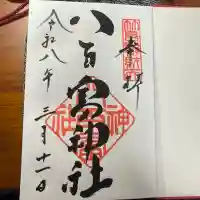 奉拝
八百富神社
令和八年三月十一日